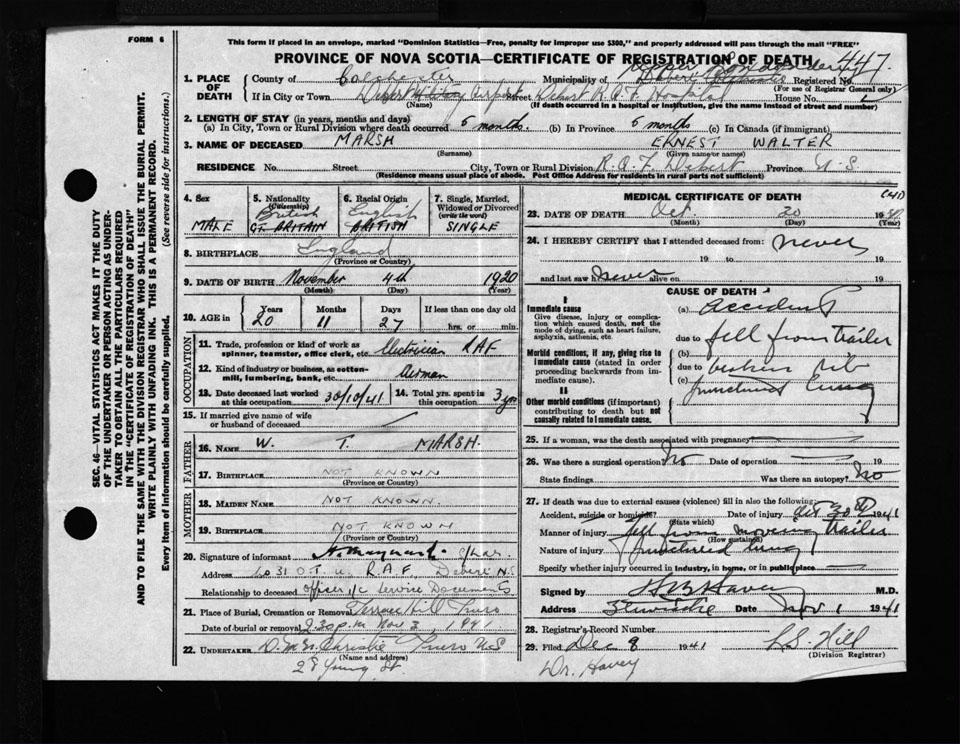 FORM 6
This form if placed in an envelope, marked "Dominion Statistics—Free, penalty for improper use $300," and properly addressed will pass through the mail "FREE"
PROVINCE OF NOVA SCOTIA—CERTIFICATE OF REGISTRATION OF DEATH 447
1. PLACE OF DEATH County of Colchester Municipality of Registered No.
(For use of Registrar General only)
If in City or Town Debert Airport Street Debert R.A.F. Hospital House No.
(Name) (If death occurred in a hospital or institution, give the name instead of street and number)
2. LENGTH OF STAY (in years, months and days)
(a) In City, Town or Rural Division where death occurred 5 months. (b) In Province 5 months (c) In Canada (if immigrant)
3. NAME OF DECEASED MARSH ERNEST WALTER
(Surname) (Given name or names)
RESIDENCE No. Street City, Town or Rural Division R.A.F. Debert Province N S
(Residence means usual place of abode. Post Office Address for residents in rural parts not sufficient)
4. Sex MALE
5. Nationality (Citizenship) British GT. BRITAIN
6. Racial Origin English BRITISH
7. Single, Married, Widowed or Divorced (write the word) SINGLE
8. BIRTHPLACE England
(Province or Country)
9. DATE OF BIRTH November 4th 1920
(Month) (Day) (Year)
10. AGE in Years 20 Months 11 Days 27 If less than one day old hrs. or min.
OCCUPATION
11. Trade, profession or kind of work as spinner, teamster, office clerk, etc. Electrician RAF
12. Kind of industry or business, as cotton-mill, lumbering, bank, etc. Airman
13. Date deceased last worked at this occupation 30/10/41 14. Total yrs. spent in this occupation 3 yrs
15. If married give name of wife or husband of deceased
FATHER
16. NAME W. T. MARSH.
17. BIRTHPLACE NOT KNOWN
(Province or Country)
MOTHER
18. MAIDEN NAME NOT KNOWN.
19. BIRTHPLACE NOT KNOWN
(Province or Country)
20. Signature of informant
Address No 31 O.T.U. R.A.F. Debert N.S
Relationship to deceased Officer i/c Service Documents
21. Place of Burial, Cremation or Removal Terrace Hill Truro
Date of burial or removal 2.30 p.m Nov 3 1941
22. UNDERTAKER Christie Truro N S
(Name and address)
28 Young St.
MEDICAL CERTIFICATE OF DEATH
23. DATE OF DEATH Oct. 30 19 (41)
(Month) (Day) (Year)
24. I HEREBY CERTIFY that I attended deceased from: never
19 to 19
and last saw h never alive on 19
CAUSE OF DEATH
I
Immediate cause
Give disease, injury or complication which caused death, not the mode of dying, such as heart failure, asphyxia, asthenia, etc.
(a) accident
due to fell from trailer
Morbid conditions, if any, giving rise to immediate cause (stated in order proceeding backwards from immediate cause).
(b) due to broken rib
(c) punctured lung
II
Other morbid conditions (if important) contributing to death but not causally related to immediate cause.
25. If a woman, was the death associated with pregnancy
26. Was there a surgical operation No Date of operation 19
State findings Was there an autopsy? No
27. If death was due to external causes (violence) fill in also the following:
Accident, suicide or homicide? Date of injury Oct 30th 1941
(State which)
Manner of injury fell from moving trailer
(How sustained)
Nature of injury punctured lung
Specify whether injury occurred in industry, in home, or in public place
Signed by Havey M.D.
Address Stewiacke Date Nov 1 1941
28. Registrar's Record Number
29. Filed Dec 8 1941 L S. Hill
(Division Registrar)
Dr. Havey
SEC. 46—VITAL STATISTICS ACT MAKES IT THE DUTY
OF THE UNDERTAKER OR PERSON ACTING AS UNDER-
TAKER TO OBTAIN ALL THE PARTICULARS REQUIRED
IN THE "CERTIFICATE OF REGISTRATION OF DEATH"
AND TO FILE THE SAME WITH THE DIVISION REGISTRAR WHO SHALL ISSUE THE BURIAL PERMIT.
WRITE PLAINLY WITH UNFADING INK. THIS IS A PERMANENT RECORD.
Every item of information should be carefully supplied. (See reverse side for instructions.)